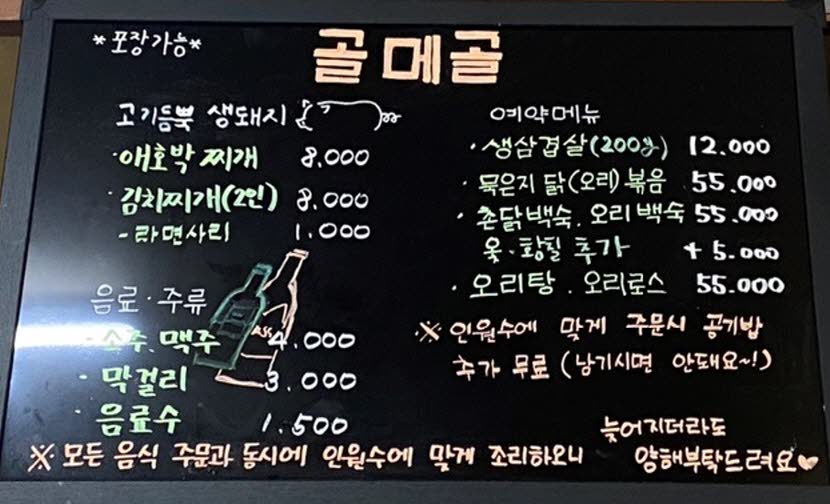 *포장가능*
골메골
고기듬뿍 생돼지
·애호박찌개 8.000
·김치찌개(2인) 8.000
-라면사리 1.000
음료·주류
·소주.맥주 4.000
·막걸리 3.000
·음료수 1.500
예약메뉴
·생삼겹살(200g) 12.000
·묵은지 닭(오리)볶음 55.000
·촌닭백숙.오리백숙 55.000
옻·황칠 추가 +5.000
·오리탕.오리로스 55.000
※인원수에 맞게 주문시 공기밥
추가 무료(남기시면 안돼요~!)
※모든 음식 주문과 동시에 인원수에 맞게 조리하오니 늦어지더라도
양해부탁드려요♥